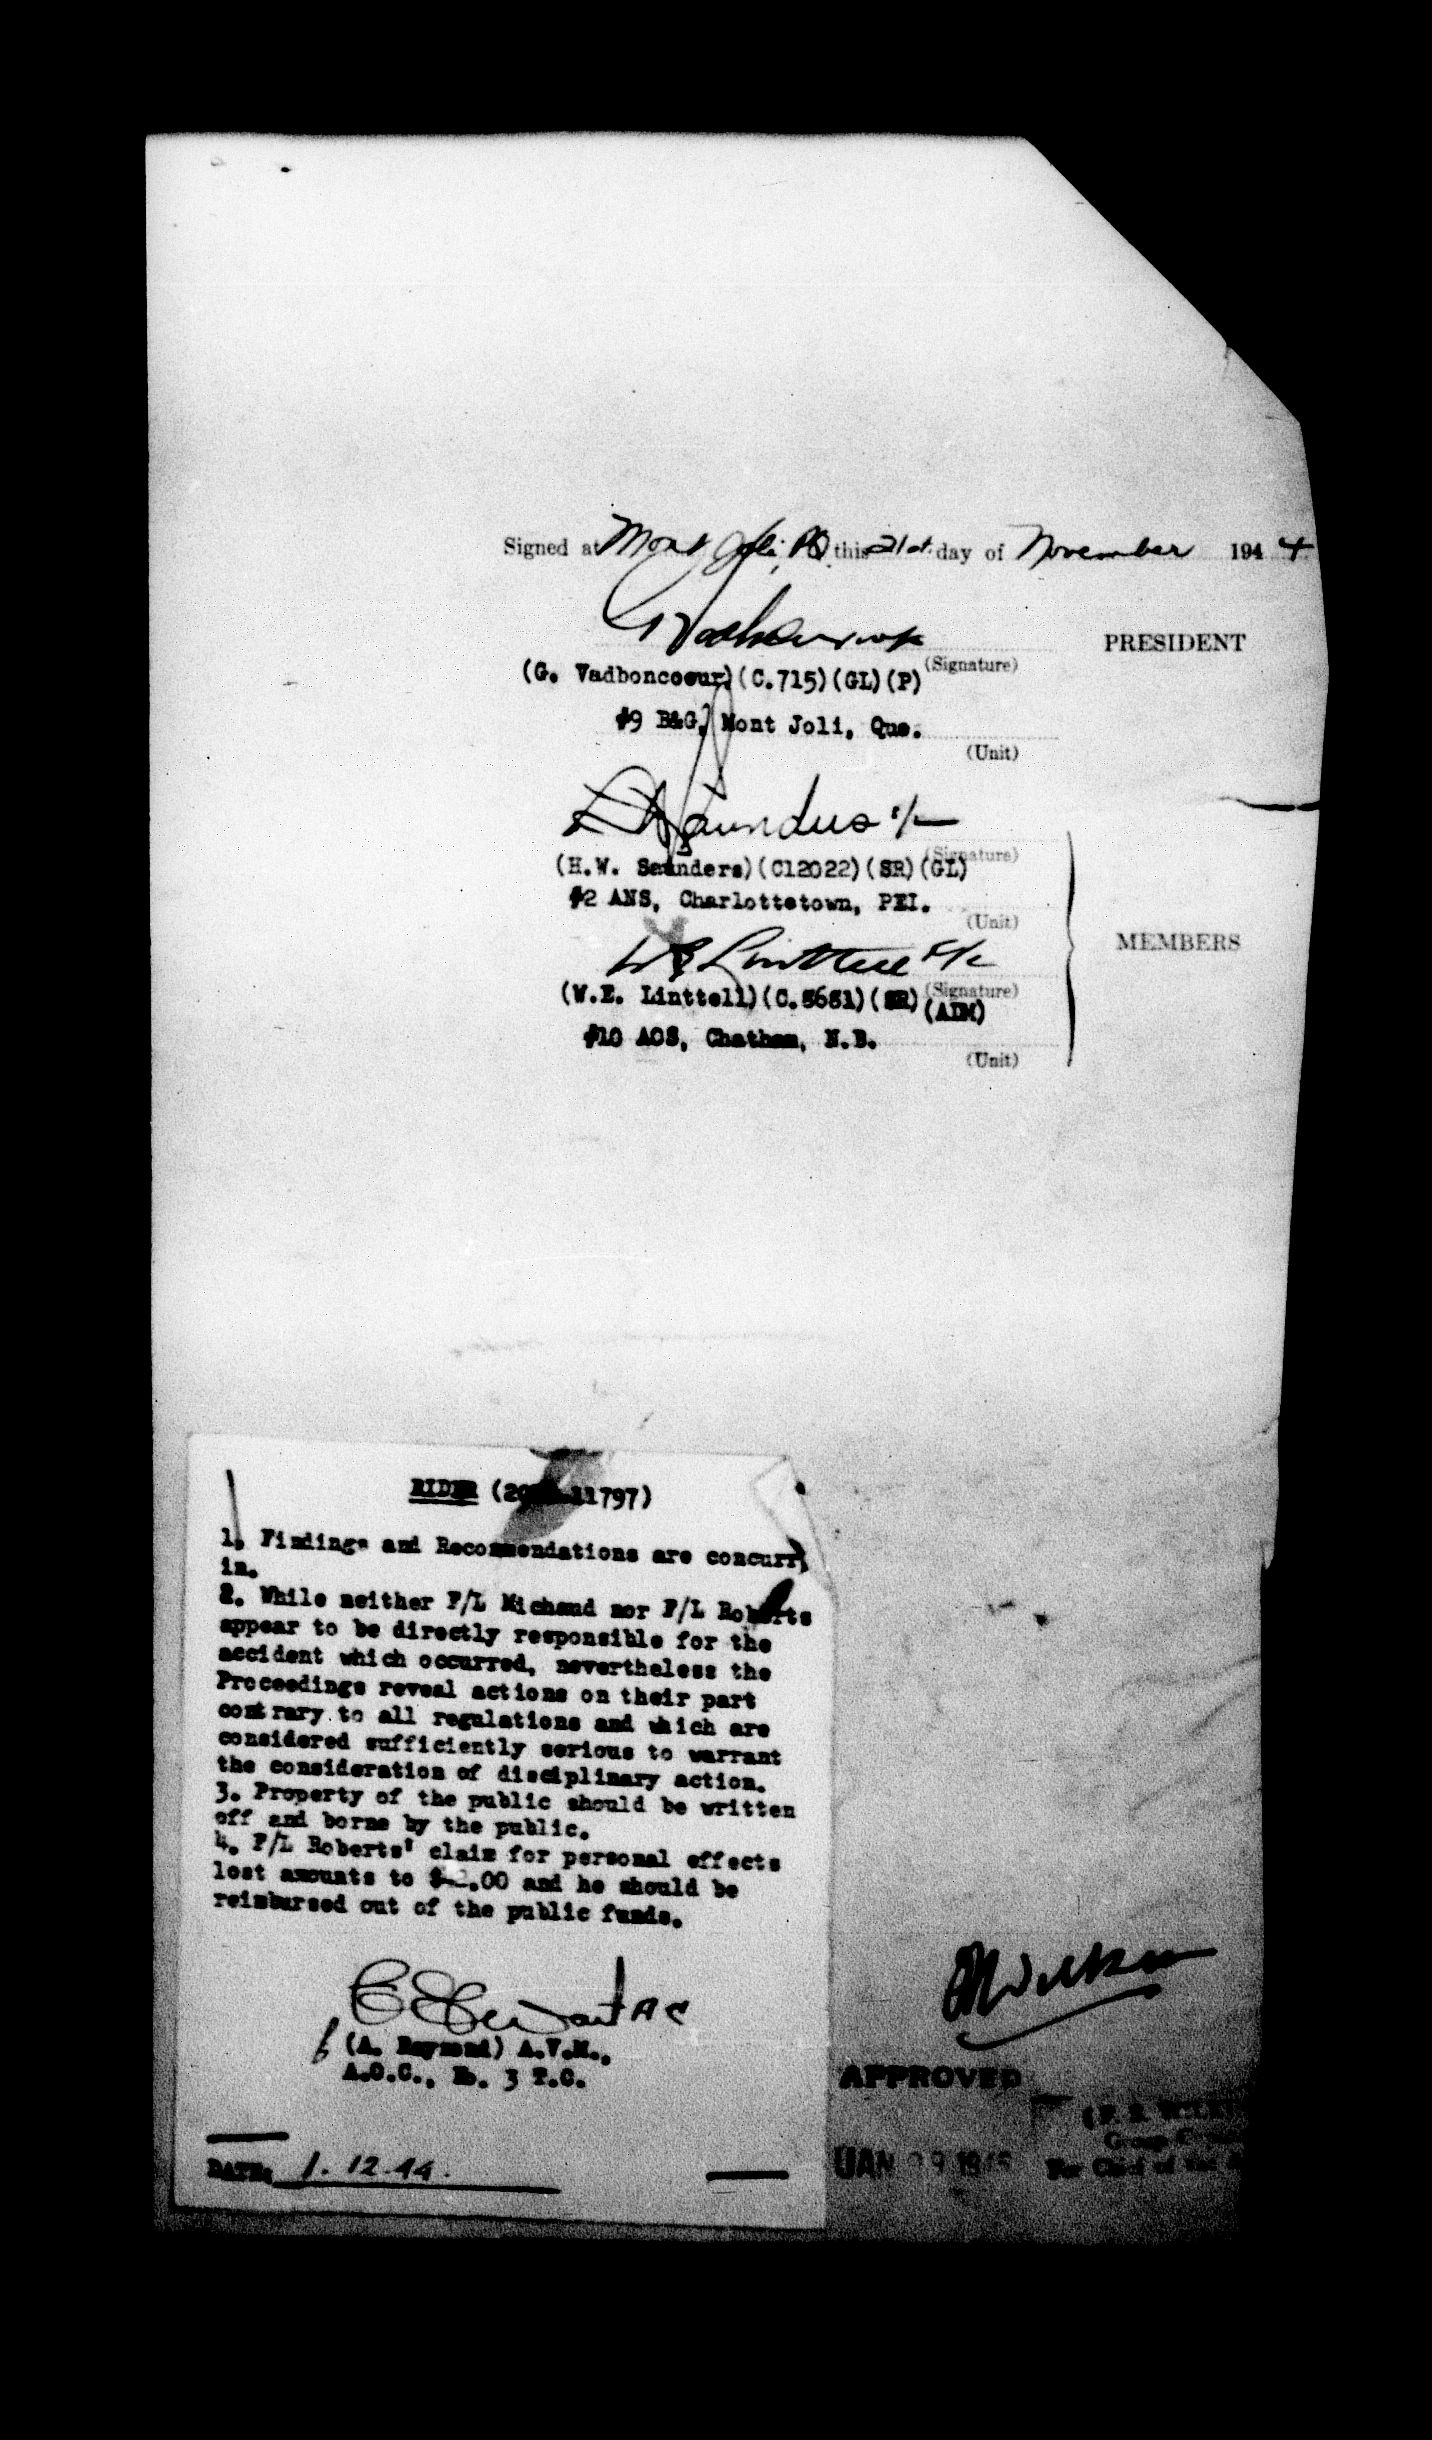 Signed at Mont Joli, PQ this 21st day of November 194 4
PRESIDENT
(Signature)
(G. Vadboncoeur)(C.715)(GL)(P)
#9 B&G, Mont Joli, Que.
(Unit)
Saunders S/L
(Signature)
(H.W. Saunders)(C12022)(SR)(GL)
#2 ANS, Charlottetown, PEI.
(Unit)
MEMBERS
W E Linttell F/L
(Signature)
(W.E. Linttell)(C.5651)(SR)(AIM)
#10 AOS, Chatham, N.B.
(Unit)
RIDER (29 11797)
1. Findings and Recommendations are concurr
in.
2. While neither F/L Michaud nor F/L Roberts
appear to be directly responsible for the
accident which occurred, nevertheless the
Proceedings reveal actions on their part
contrary to all regulations and which are
considered sufficiently serious to warrant
the consideration of disciplinary action.
3. Property of the public should be written
off and borne by the public.
4. F/L Roberts' claim for personal effects
lost amounts to .00 and he should be
reimbursed out of the public funds.
A C
(A. Raymond) A.V.M.,
A.O.C., No. 3 T.C.
DATE: 1. 12.44.
APPROVED
JAN 29 1945
Group
For Chief of the